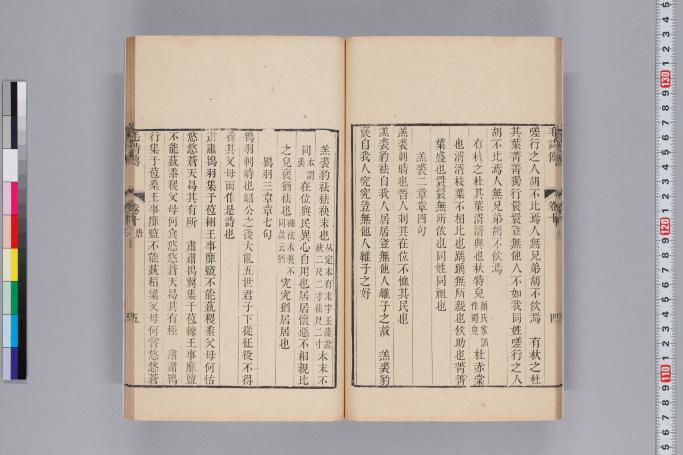 嗟行之人胡不比焉人無兄弟胡不佽焉　有杕之杜
其葉菁菁獨行睘睘豈無他人不如我同姓嗟行之人
胡不比焉人無兄弟胡不佽焉
有杕之杜其葉湑湑興也杕特皃
杜赤棠
也湑湑枝葉不相比也踽踽無所親也佽助也菁菁
葉盛也睘睘無所依也同姓同祖也
羔裘二章章四句
羔裘刺時也晉人刺其在位不恤其民也
羔裘豹袪自我人居居豈無他人維子之故　羔裘豹
褎自我人究究豈無他人維子之好
羔裘豹袪袪袂末也
本末不
同
在位與民異心自用也居居懷惡不相親比
之皃褎猶袪也
究究猶居居也
鴇羽三章章七句
鴇羽刺時也昭公之後大亂五世君子下從征役不得
養其父母而作是詩也
肅肅鴇羽集于苞栩王事靡盬不能蓺稷黍父母何怙
悠悠蒼天曷其有所　肅肅鴇翼集于苞棘王事靡盬
不能蓺黍稷父母何食悠悠蒼天曷其有極　肅肅鴇
行集于苞桑王事靡盬不能蓺稻粱父母何嘗悠悠蒼